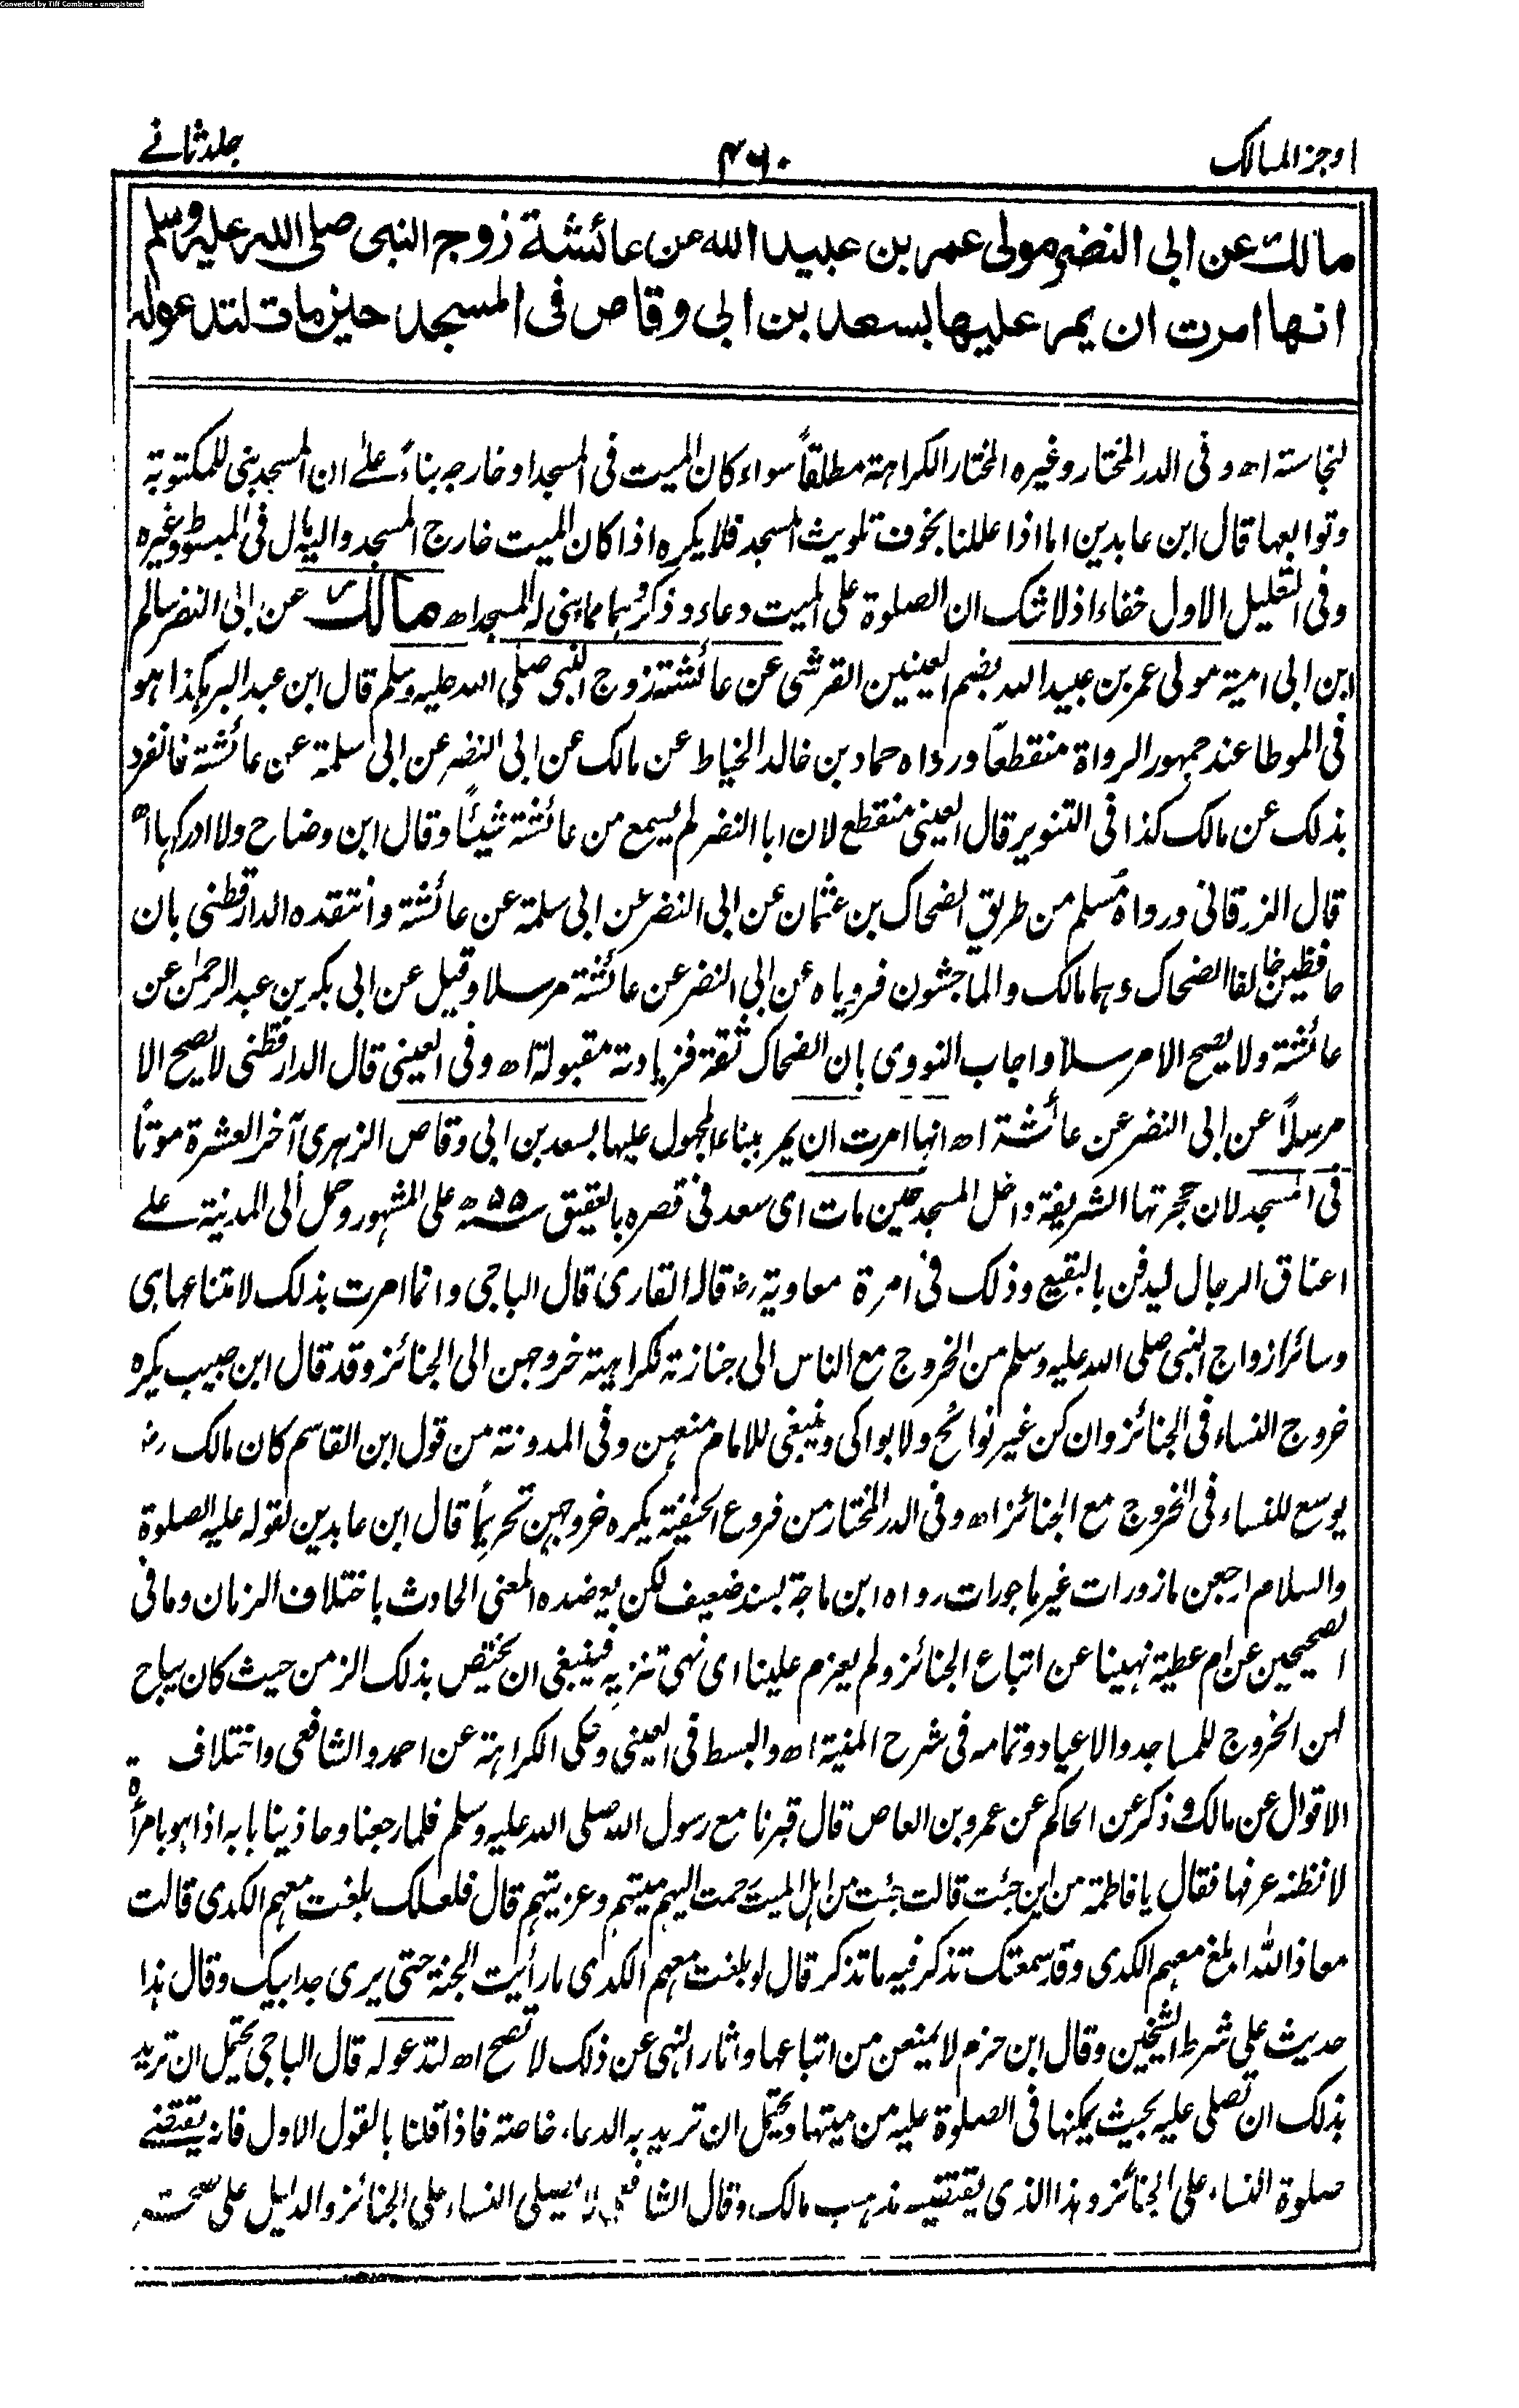 Converted by Tiff Combine - unregistered
اوجز المسالک
۴۶۰
جلد ثانے
مالك عن ابی النضر مولی عمر بن عبید الله عن عائشة زوج النبی صلی الله علیه وسلم
انها امرت ان یمر علیها بسعد بن ابی وقاص فی المسجد حین مات لتدعو له
لنجاسته اھ وفی الدر المختار وغیره المختار الکراہة مطلقاً سواء کان المیت فی المسجد او خارجه بناءً علے ان المسجد بنی للمکتوبة
وتوابعها قال ابن عابدین اما اذا عللنا بخوف تلویث المسجد فلا یکره اذا کان المیت خارج المسجد والیه مال فی المبسوط وغیره
وفی التعلیل الاول خفاء اذ لا شک ان الصلوة علی المیت دعاء وذکر وہما مما بنی له المسجد اھ مالك عن ابی النضر سالم
ابن ابی امیة مولی عمر بن عبید الله بضم العینین القرشی عن عائشة زوج النبی صلی الله علیه وسلم قال ابن عبد البر ہکذا ہو
فی الموطا عند جمہور الرواة منقطعاً ورواه حماد بن خالد الخیاط عن مالک عن ابی النضر عن ابی سلمة عن عائشة فانفرد
بذلک عن مالک کذا فی التنویر قال العینی منقطع لان ابا النضر لم یسمع من عائشة شیئاً وقال ابن وضاح ولا ادرکہا اھ
قال الزرقانی ورواه مسلم من طریق الضحاک بن عثمان عن ابی النضر عن ابی سلمة عن عائشة وانتقده الدارقطنی بان
حافظین خالفا الضحاک وہما مالک والماجشون فرویاه عن ابی النضر عن عائشة مرسلا وقیل عن ابی بکر بن عبد الرحمٰن عن
عائشة ولا یصح الا مرسلاً واجاب النووی بان الضحاک ثقة فزیادته مقبولة اھ وفی العینی قال الدارقطنی لا یصح الا
مرسلاً عن ابی النضر عن عائشة اھ انہا امرت ان یمر ببناء المجہول علیہا بسعد بن ابی وقاص الزہری آخر العشرة موتاً
فی المسجد لان حجرتها الشریفة داخل المسجد حین مات ای سعد فی قصره بالعقیق ۵۵ھ علی المشہور وحمل الی المدینة علے
اعناق الرجال لیدفن بالبقیع وذلک فی امرة معاویة رض قاله القاری قال الباجی وانما امرت بذلک لامتناعہا ہی
وسائر ازواج النبی صلی الله علیه وسلم من الخروج مع الناس الی جنازته لکراہیة خروجہن الی الجنائز وقد قال ابن حبیب یکره
خروج النساء فی الجنائز وان کن غیر نوائح ولا بواکی وینبغی للامام منعہن وفی المدونة من قول ابن القاسم کان مالک رض
یوسع للنساء فی الخروج مع الجنائز اھ وفی الدر المختار من فروع الحنفیة یکره خروجہن تحریماً قال ابن عابدین لقوله علیه الصلوة
والسلام ارجعن مازورات غیر ماجورات رواه ابن ماجة بسند ضعیف لکن یعضده المعنی الحادث باختلاف الزمان وما فی
الصحیحین عن ام عطیة نہینا عن اتباع الجنائز ولم یعزم علینا ای نہی تنزیه فینبغی ان یختص بذلک الزمن حیث کان یباح
لہن الخروج للمساجد والاعیاد وتمامه فی شرح المنیة اھ والبسط فی العینی وحکی الکراہة عن احمد والشافعی واختلاف
الاقوال عن مالک وذکر عن الحاکم عن عمرو بن العاص قال قبرنا مع رسول الله صلی الله علیه وسلم فلما رجعنا وحاذینا بابه اذا ہو بامرأة
لا نظنه عرفها فقال یا فاطمة من این جئت قالت جئت من اہل المیت رحمت الیہم میتہم وعزیتہم قال فلعلک بلغت معہم الکدی قالت
معاذ الله ان ابلغ معہم الکدی وقد سمعتک تذکر فیه ما تذکر قال لو بلغت معہم الکدی ما رأیت الجنة حتی یری جد ابیک وقال ہذا
حدیث علی شرط الشیخین وقال ابن حزم لا یمنعن من اتباعہا واثار النہی عن ذلک لا تصح اھ لتدعو له قال الباجی یحتمل ان ترید
بذلک ان تصلی علیه بحیث یمکنہا فی الصلوة علیه من میتہا ویحتمل ان ترید به الدعاء خاصة فاذا قلنا بالقول الاول فانه یقتضے
صلوة النساء علی الجنائز وہذا الذی یقتضیه مذہب مالک وقال الشافعی لا یصلی النساء علی الجنائز والدلیل علی صحته